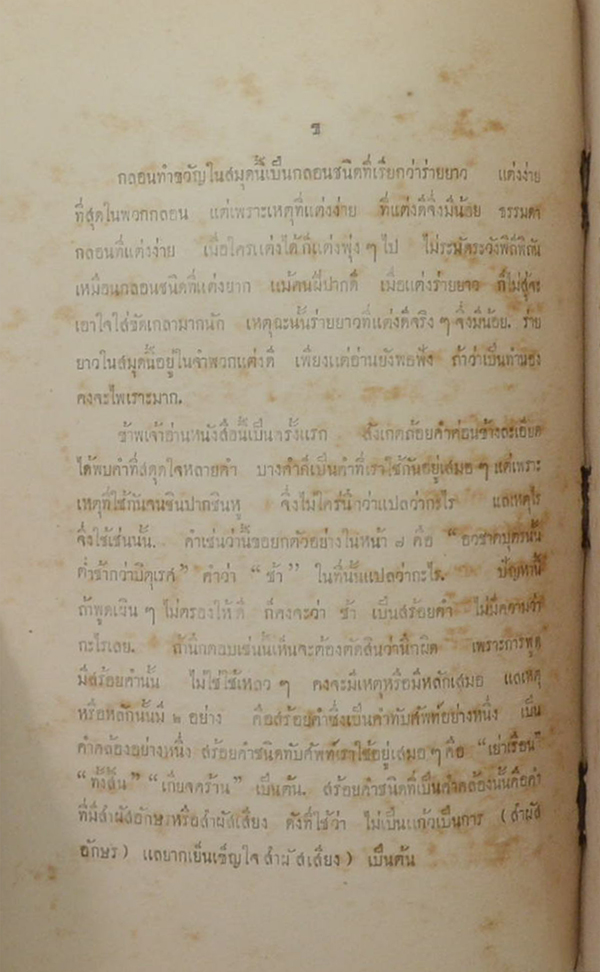 ข
กลอนทำขวัญในสมุดนี้เป็นกลอนชนิดที่เรียกว่าร่ายยาว แต่งง่าย
ที่สุดในพวกกลอน แต่เพราะเหตุที่แต่งง่าย ที่แต่งดีจึ่งมีน้อย ธรรมดา
กลอนที่แต่งง่าย เมื่อใครแต่งได้ก็แต่งพุ่ง ๆ ไป ไม่ระมัดระวังพิถีพิถัน
เหมือนกลอนชนิดที่แต่งยาก แม้คนฝีปากดี เมื่อแต่งร่ายยาว ก็ไม่สู้จะ
เอาใจใส่ขัดเกลามากนัก เหตุฉะนั้นร่ายยาวที่แต่งดีจริง ๆ จึ่งมีน้อย. ร่าย
ยาวในสมุดนี้อยู่ในจำพวกแต่งดี เพียงแต่อ่านยังพอฟัง ถ้าว่าเป็นทำนอง
คงจะไพเราะมาก.
ข้าพเจ้าอ่านหนังสือนี้เป็นครั้งแรก สังเกตถ้อยคำค่อนข้างละเอียด
ได้พบคำที่สดุดใจหลายคำ บางคำก็เป็นคำที่เราใช้กันอยู่เสมอ ๆ แต่เพราะ
เหตุที่ใช้กันจนชินปากชินหู จึ่งไม่ใคร่นึกว่าแปลว่ากะไร แลเหตุไร
จึ่งใช้เช่นนั้น. คำเช่นว่านี้ขอยกตัวอย่างในหน้า ๗ คือ “อวชาตบุตรนั้น
ต่ำช้ากว่าบิตุเรศ” คำว่า “ช้า” ในที่นั้นแปลว่ากะไร. ปัญหานี้
ถ้าพูดเผิน ๆ ไม่ตรองให้ดี ก็คงจะว่า ช้า เป็นสร้อยคำ ไม่มีความว่า
กะไรเลย. ถ้านึกตอบเช่นนั้นเห็นจะต้องตัดสินว่านึกผิด เพราะการพูด
มีสร้อยคำนั้น ไม่ใช่ใช้เหลว ๆ คงจะมีเหตุหรือมีหลักเสมอ แลเหตุ
หรือหลักนั้นมี ๒ อย่าง คือสร้อยคำซึ่งเป็นคำทับศัพท์อย่างหนึ่ง เป็น
คำคล้องอย่างหนึ่ง สร้อยคำชนิดทับศัพท์เราใช้อยู่เสมอ ๆ คือ “เย่าเรือน”
“ทั้งสิ้น” “เกียจคร้าน” เป็นต้น. สร้อยคำชนิดที่เป็นคำคล้องนั้นคือคำ
ที่มีสำผัสอักษรหรือสำผัสเสียง ดังที่ใช้ว่า ไม่เป็นแก้วเป็นการ (สำผัส
อักษร) แลยากเย็นเข็ญใจ สำผัสเสียง) เป็นต้น